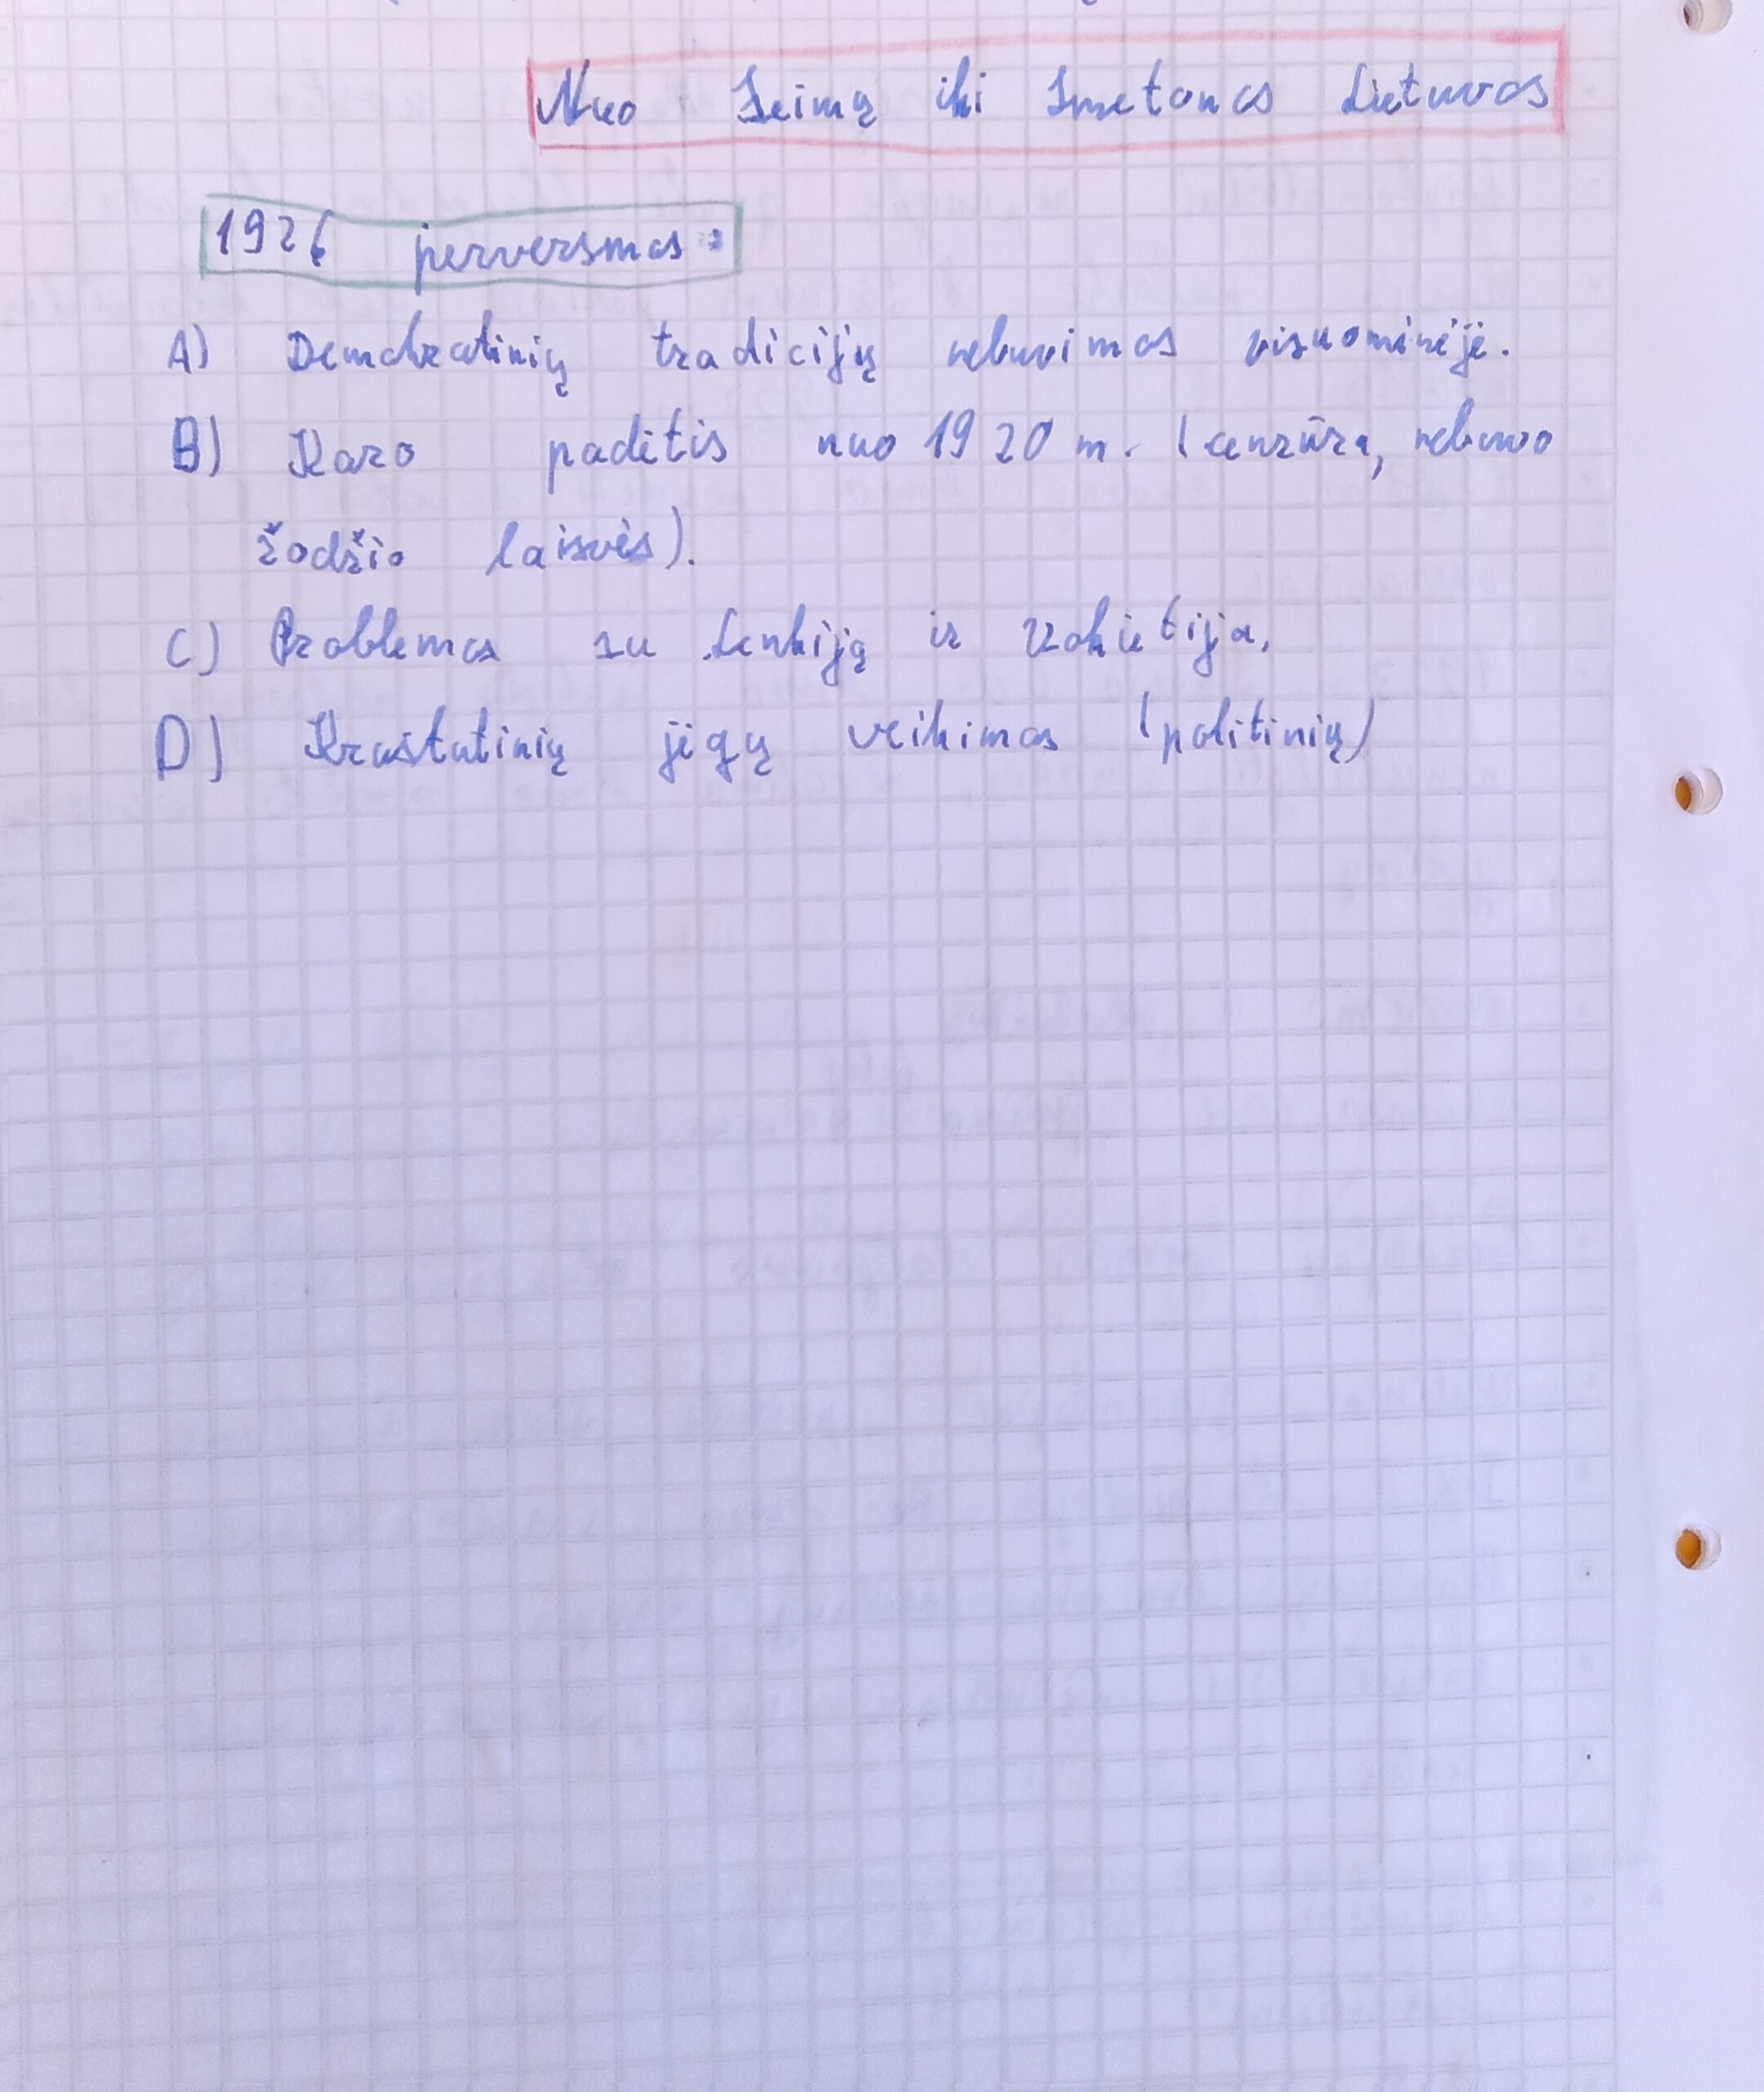 Nuo Seimų iki Smetonos Lietuvos
1926 perversmas:
A) Demokratinių tradicijų nebuvimas visuomėnėje.
B) Karo padėtis nuo 1920 m. (cenzūra, nebuvo
žodžio laisvės).
C) Problemos su Lenkiją ir Vokietija.
D) Kraštutinių jėgų veikimas (politinių)